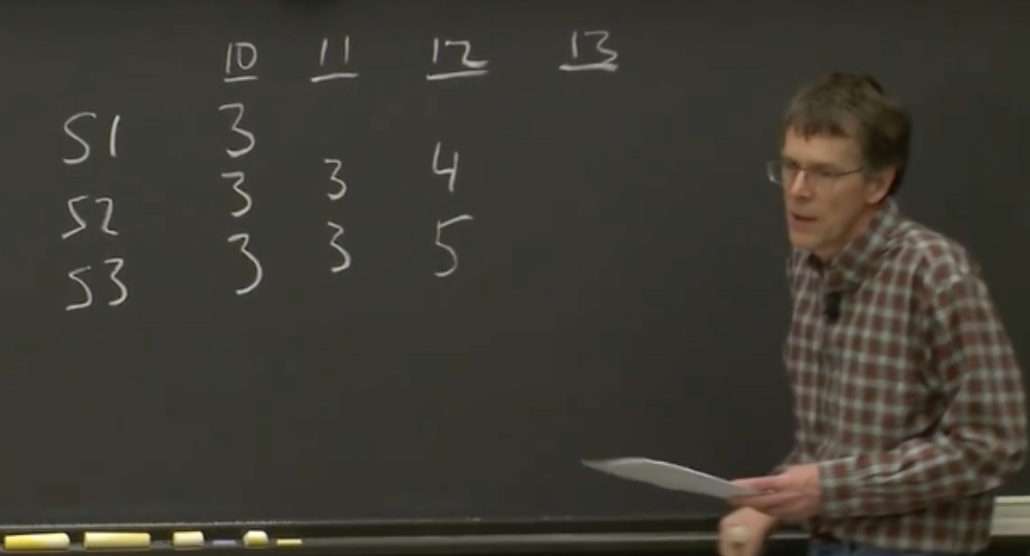 10 11 12 13
S1 3
S2 3 3 4
S3 3 3 5